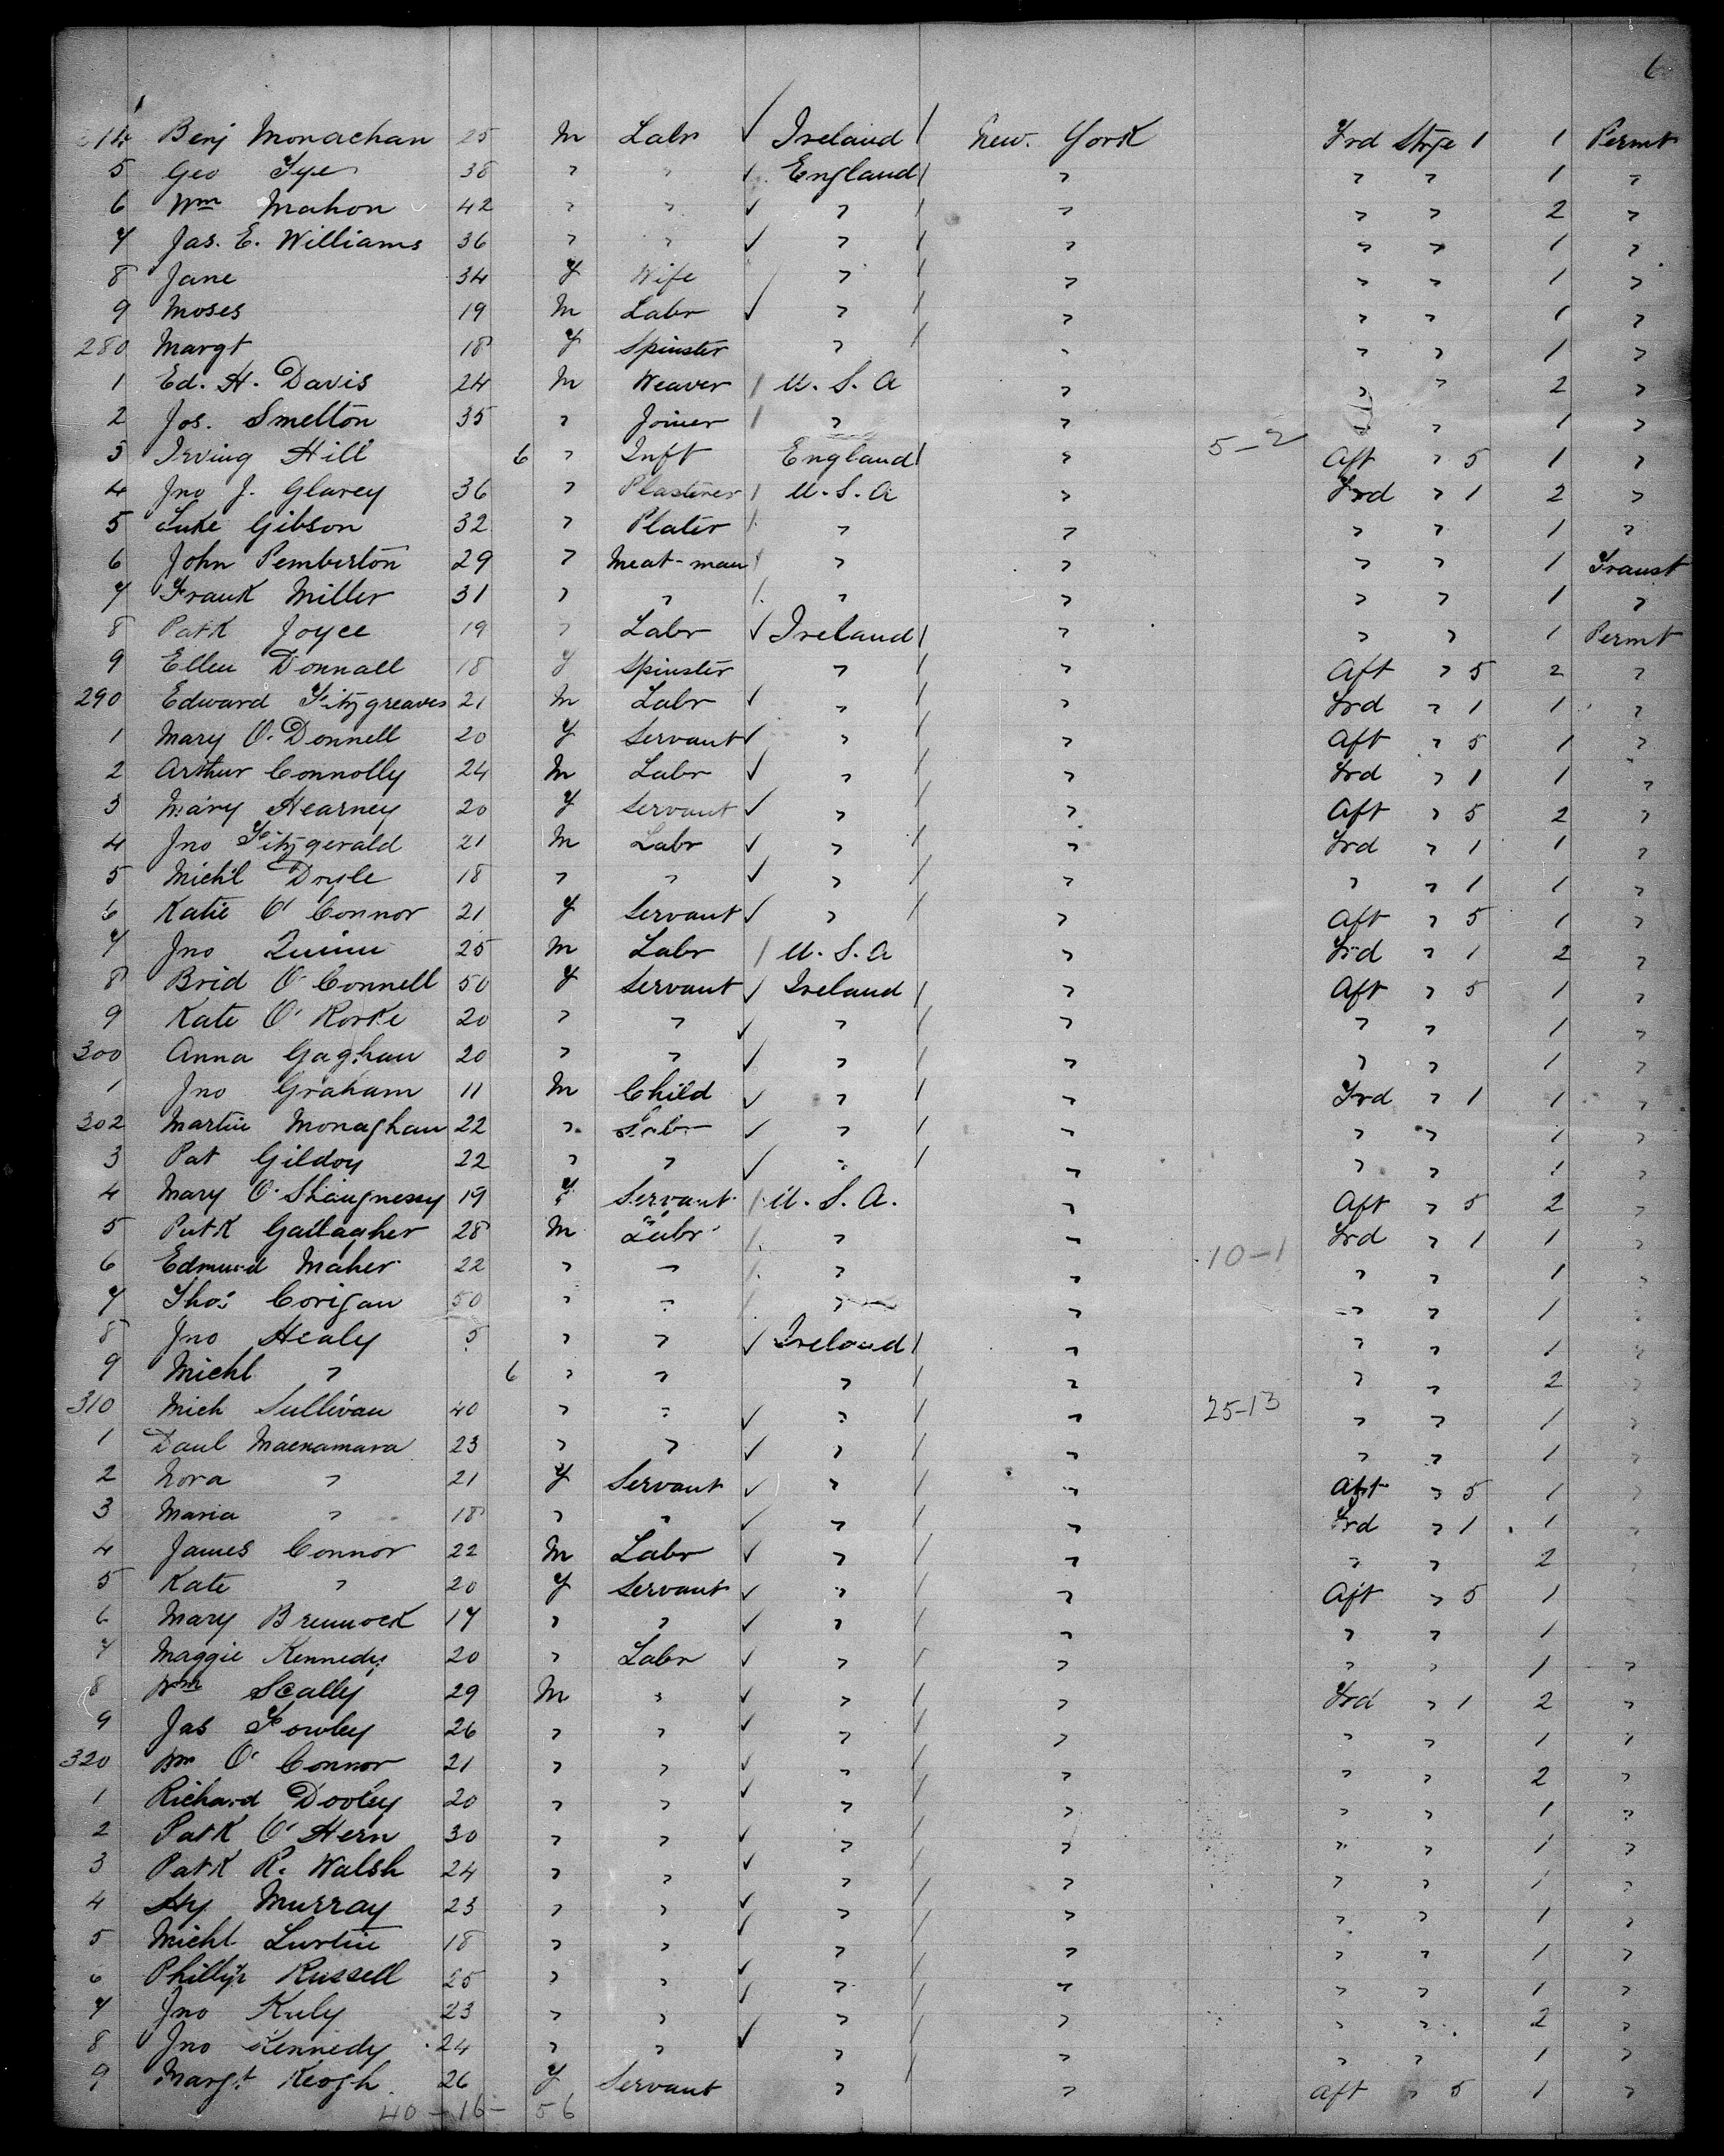 6
274 Benj Monachan 25 M Labr ✓ Ireland / New. York Frd Strge 1 1 Permt
5 Geo Tye 38 " " ✓ England / " " " 1 "
6 Wm Mahon 42 " " ✓ " / " " " 2 "
7 Jas. E. Williams 36 " " ✓ " / " " " 1 "
8 Jane 34 F Wife " / " " " 1 "
9 Moses 19 M Labr ✓ " / " " " 1 "
280 Margt 18 F Spinster " / " " " 1 "
1 Ed. H. Davis 24 M Weaver / U. S. A " " " 2 "
2 Jos. Smelton 35 " Joiner / " " " 1 "
3 Irving Hill 6 " Inft England / " 5-2 Aft " 5 1 "
4 Jno J. Glavey 36 " Plasterer / U. S. A " Frd " 1 2 "
5 Luke Gibson 32 " Plater / " " " " 1 "
6 John Pemberton 29 " Meat-man / " " " " 1 Transt
7 Frank Miller 31 " " / " " " " 1 "
8 Patk Joyce 19 " Labr ✓ Ireland / " " " 1 Permt
9 Ellen Donnall 18 F Spinster " / " Aft " 5 2 "
290 Edward Fitzgreaves 21 M Labr ✓ " / " Frd " 1 1 "
1 Mary O'Donnell 20 F Servant ✓ " / " Aft " 5 1 "
2 Arthur Connolly 24 M Labr ✓ " / " Frd " 1 1 "
3 Mary Hearney 20 F Servant ✓ " / " Aft " 5 2 "
4 Jno Fitzgerald 21 M Labr ✓ " / " Frd " 1 1 "
5 Michl Dryle 18 " " ✓ " / " " " 1 1 "
6 Katie O'Connor 21 F Servant ✓ " / " Aft " 5 1 "
7 Jno Quinn 25 M Labr / U. S. A " Frd " 1 2 "
8 Brid O'Connell 50 F Servant ✓ Ireland / " Aft " 5 1 "
9 Kate O'Rorke 20 " " ✓ " / " " " 1 "
300 Anna Gaghan 20 " " ✓ " / " " " 1 "
1 Jno Graham 11 M Child ✓ " / " Frd " 1 1 "
302 Martin Monaghan 22 " Labr ✓ " / " " " 1 "
3 Pat Gildoy 22 " " ✓ " / " " " 1 "
4 Mary O'Shaugnessy 19 F Servant / U. S. A. " Aft " 5 2 "
5 Patk Gallagher 28 M Labr / " " Frd " 1 1 "
6 Edmund Maher 22 " " / " " 10-1 " " 1 "
7 Thos Corigan 50 " " / " " " " 1 "
8 Jno Healy 5 " " ✓ Ireland / " " " 1 "
9 Michl " 6 " " " / " " " 2 "
310 Mich Sullivan 40 " " ✓ " / " 25-13 " " 1 "
1 Danl Macnamara 23 " " ✓ " / " " " 1 "
2 Nora " 21 F Servant ✓ " / " Aft " 5 1 "
3 Maria " 18 " " ✓ " / " Frd " 1 1
4 James Connor 22 M Labr ✓ " / " " " 2
5 Kate " 20 F Servant ✓ " / " Aft " 5 1
6 Mary Brennock 17 " " ✓ " / " " " 1
7 Maggie Kennedy 20 " Labr ✓ " / " " " 1 "
8 Wm Scally 29 M " ✓ " / " Frd " 1 2 "
9 Jas Fowley 26 " " ✓ " / " " " 1 "
320 Wm O'Connor 21 " " ✓ " / " " " 2 "
1 Richard Dooley 20 " " ✓ " / " " " 1 "
2 Patk O'Hern 30 " " ✓ " / " " " 1 "
3 Patk R. Walsh 24 " " ✓ " / " " " 1 "
4 Hy Murray 23 " " ✓ " / " " " 1 "
5 Michl Lurtin 18 " " ✓ " / " " " 1 "
6 Phillip Russell 25 " " ✓ " / " " " 1 "
7 Jno Kuly 23 " " ✓ " / " " " 2 "
8 Jno Kennedy 24 " " ✓ " / " " " 1 "
9 Margt Keogh 26 F Servant " / " Aft " 5 1 "
40-16-56